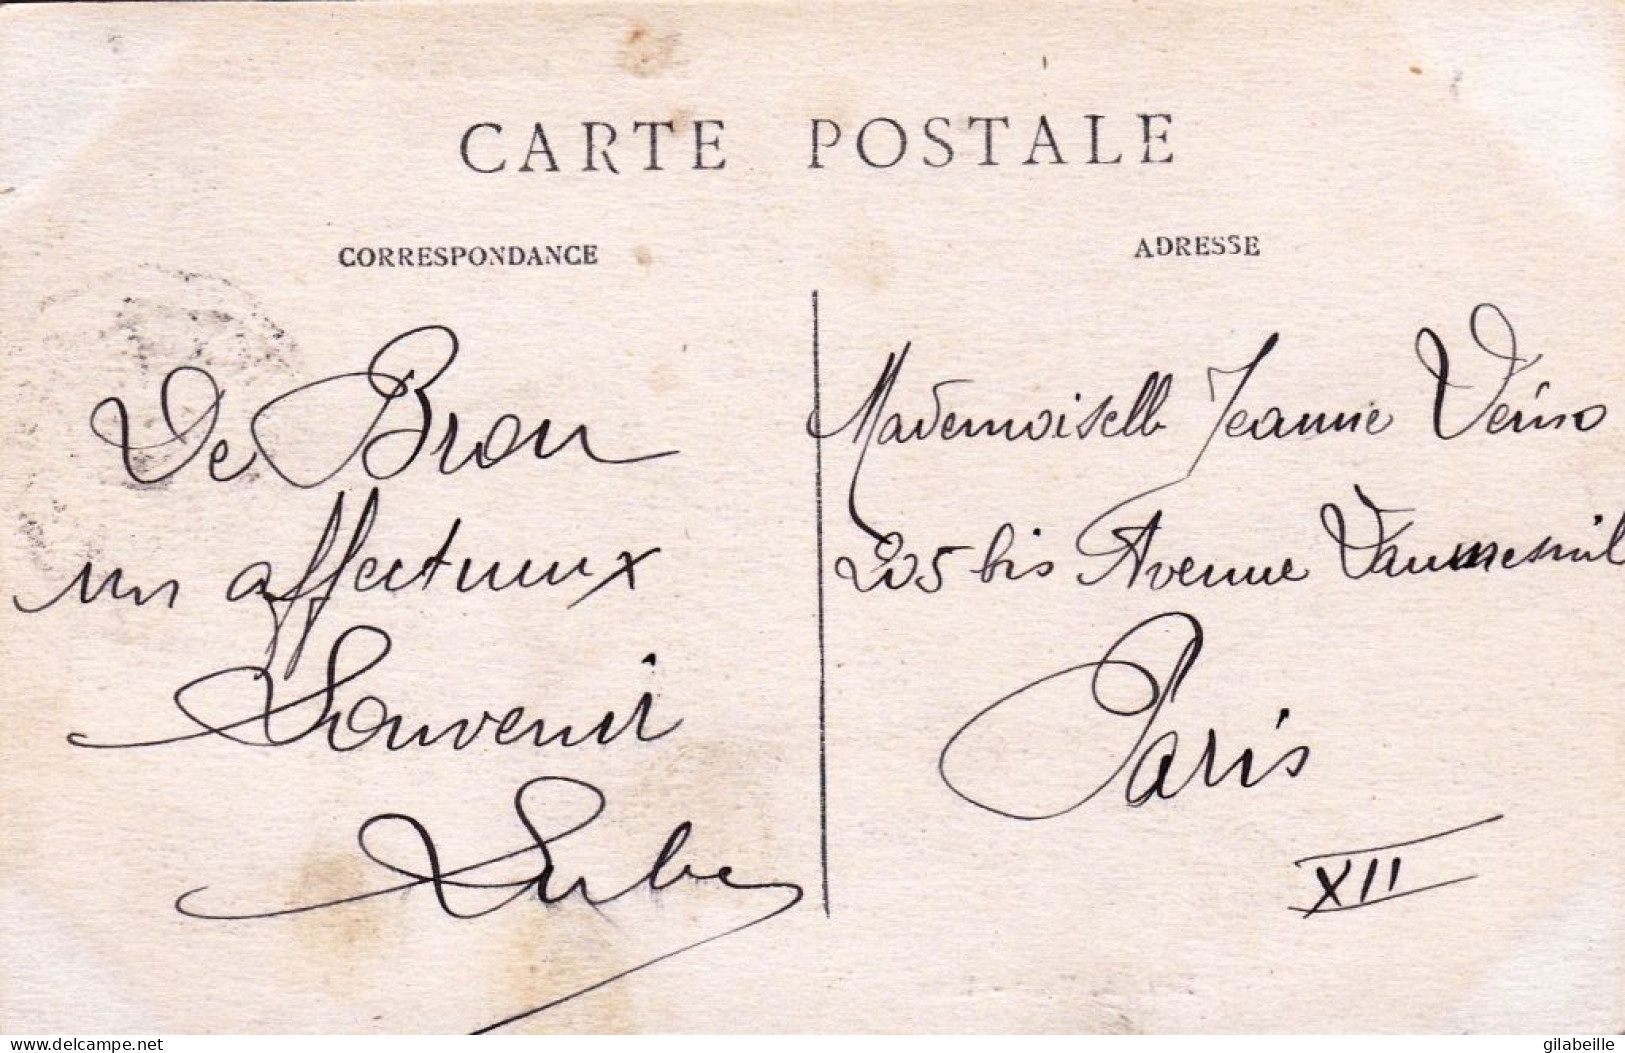 CARTE POSTALE
CORRESPONDANCE
De Bron
un affectueux
Souvenir
ADRESSE
Mademoiselle Jeanne
205 bis Avenue Daumesnil
Paris
XII
delcampe.net
gilabeille